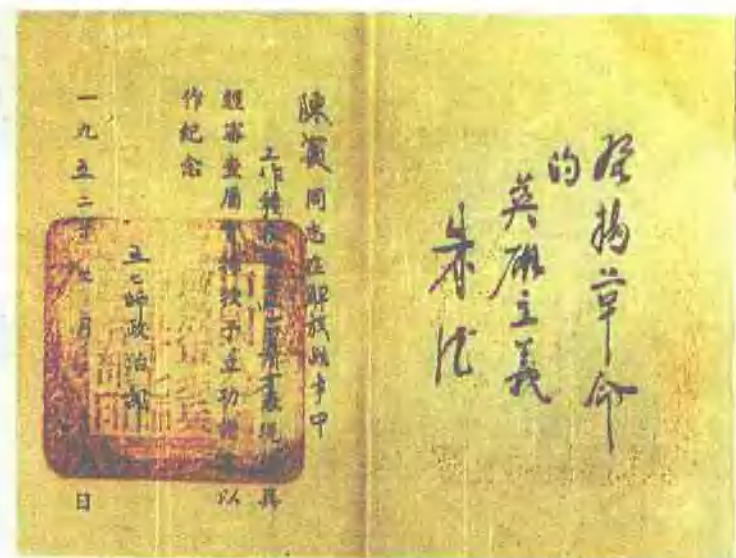 發揚革命
的
英雄主義
朱德
陳賓同志在解放战争中
工作積極
經審查屬實特授予立功證 以
作紀念
五七師政治部
一九五二年 七月 日